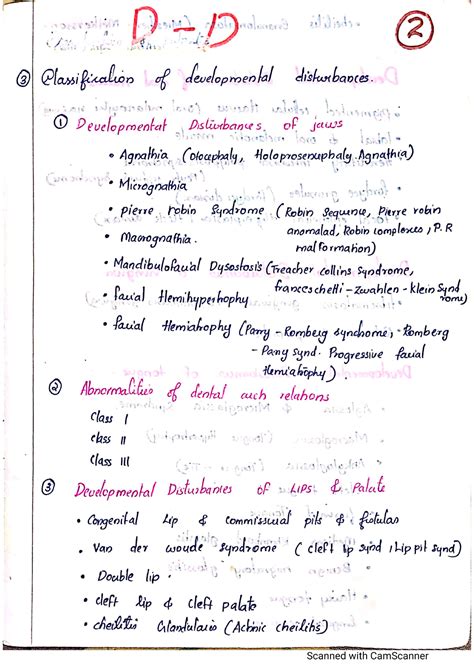 D-D
2
③ Classification of developmental disturbances.
① Developmental Disturbances of jaws
• Agnathia (Otocephaly, Holoprosencephaly Agnathia)
• Micrognathia
• Pierre robin Syndrome (Robin Sequence, Pierre robin
anomalad, Robin complexes, P.R
malformation)
• Macrognathia.
• Mandibulofacial Dysostosis (Treacher collins Syndrome,
franceschetti - Zwahlen - Klein Synd
rome)
• facial Hemihyperhophy
• facial Hemiahophy (Parry - Romberg syndrome, Romberg
- Parry Synd. Progressive facial
Hemiahophy)
② Abnormalities of dental arch relations
Class I
class II
Class III
③ Developmental Disturbances of LIPS & Palate
• Congenital Lip & commissural pits & fistulas
• Van der woude syndrome (cleft lip synd, Lip pit synd)
• Double lip.
• cleft lip & cleft palate
• cheilitis Glandularis (Actinic cheilitis)
Scanned with CamScanner